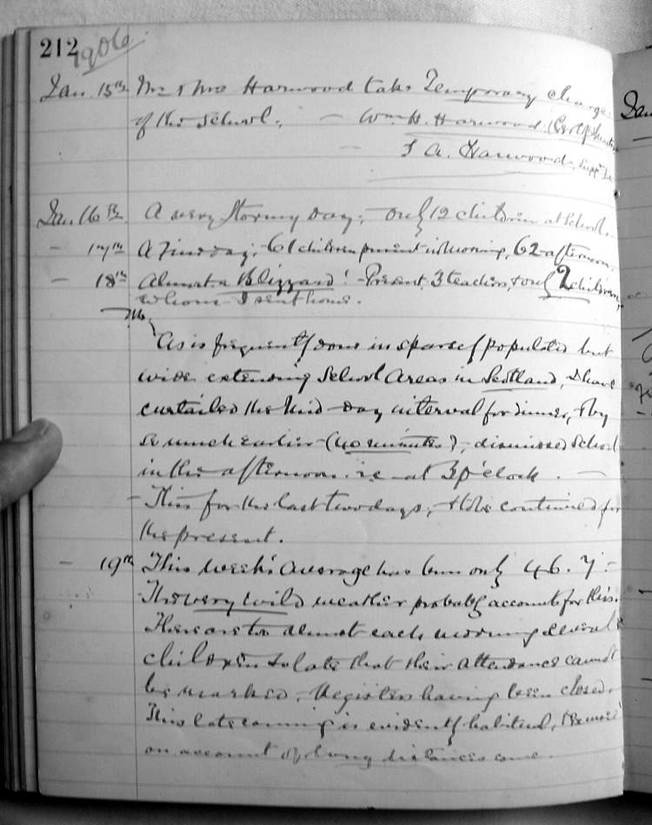 212
1906
Jan. 15th Mr & Mrs Harwood take Temporary charge
of the School. — Wm H. Harwood
J A. Harwood, Supp
Jan. 16th A very stormy day; only 12 children at School.
— 17th A Fine day; 61 children present in Morning, 62 afternoon.
— 18th Almost a Blizzard! Present, 3 teachers, & only 2 children,
whom I sent home.
As is frequently done in sparsely populated but
wide extending School Areas in Scotland, I have
curtailed the Mid-day interval for dinner, & by
so much earlier (40 minutes), dismissed School
in the afternoon. i.e. at 3 o'clock. —
This for the last two days, & to be continued for
the present.
— 19th This week's average has been only 46.7 —
The very wild weather probably accounts for this.
There are too almost each morning several
children so late that their attendance cannot
be marked, Registers having been closed.
This late coming is evidently habitual,
on account of long distances some.